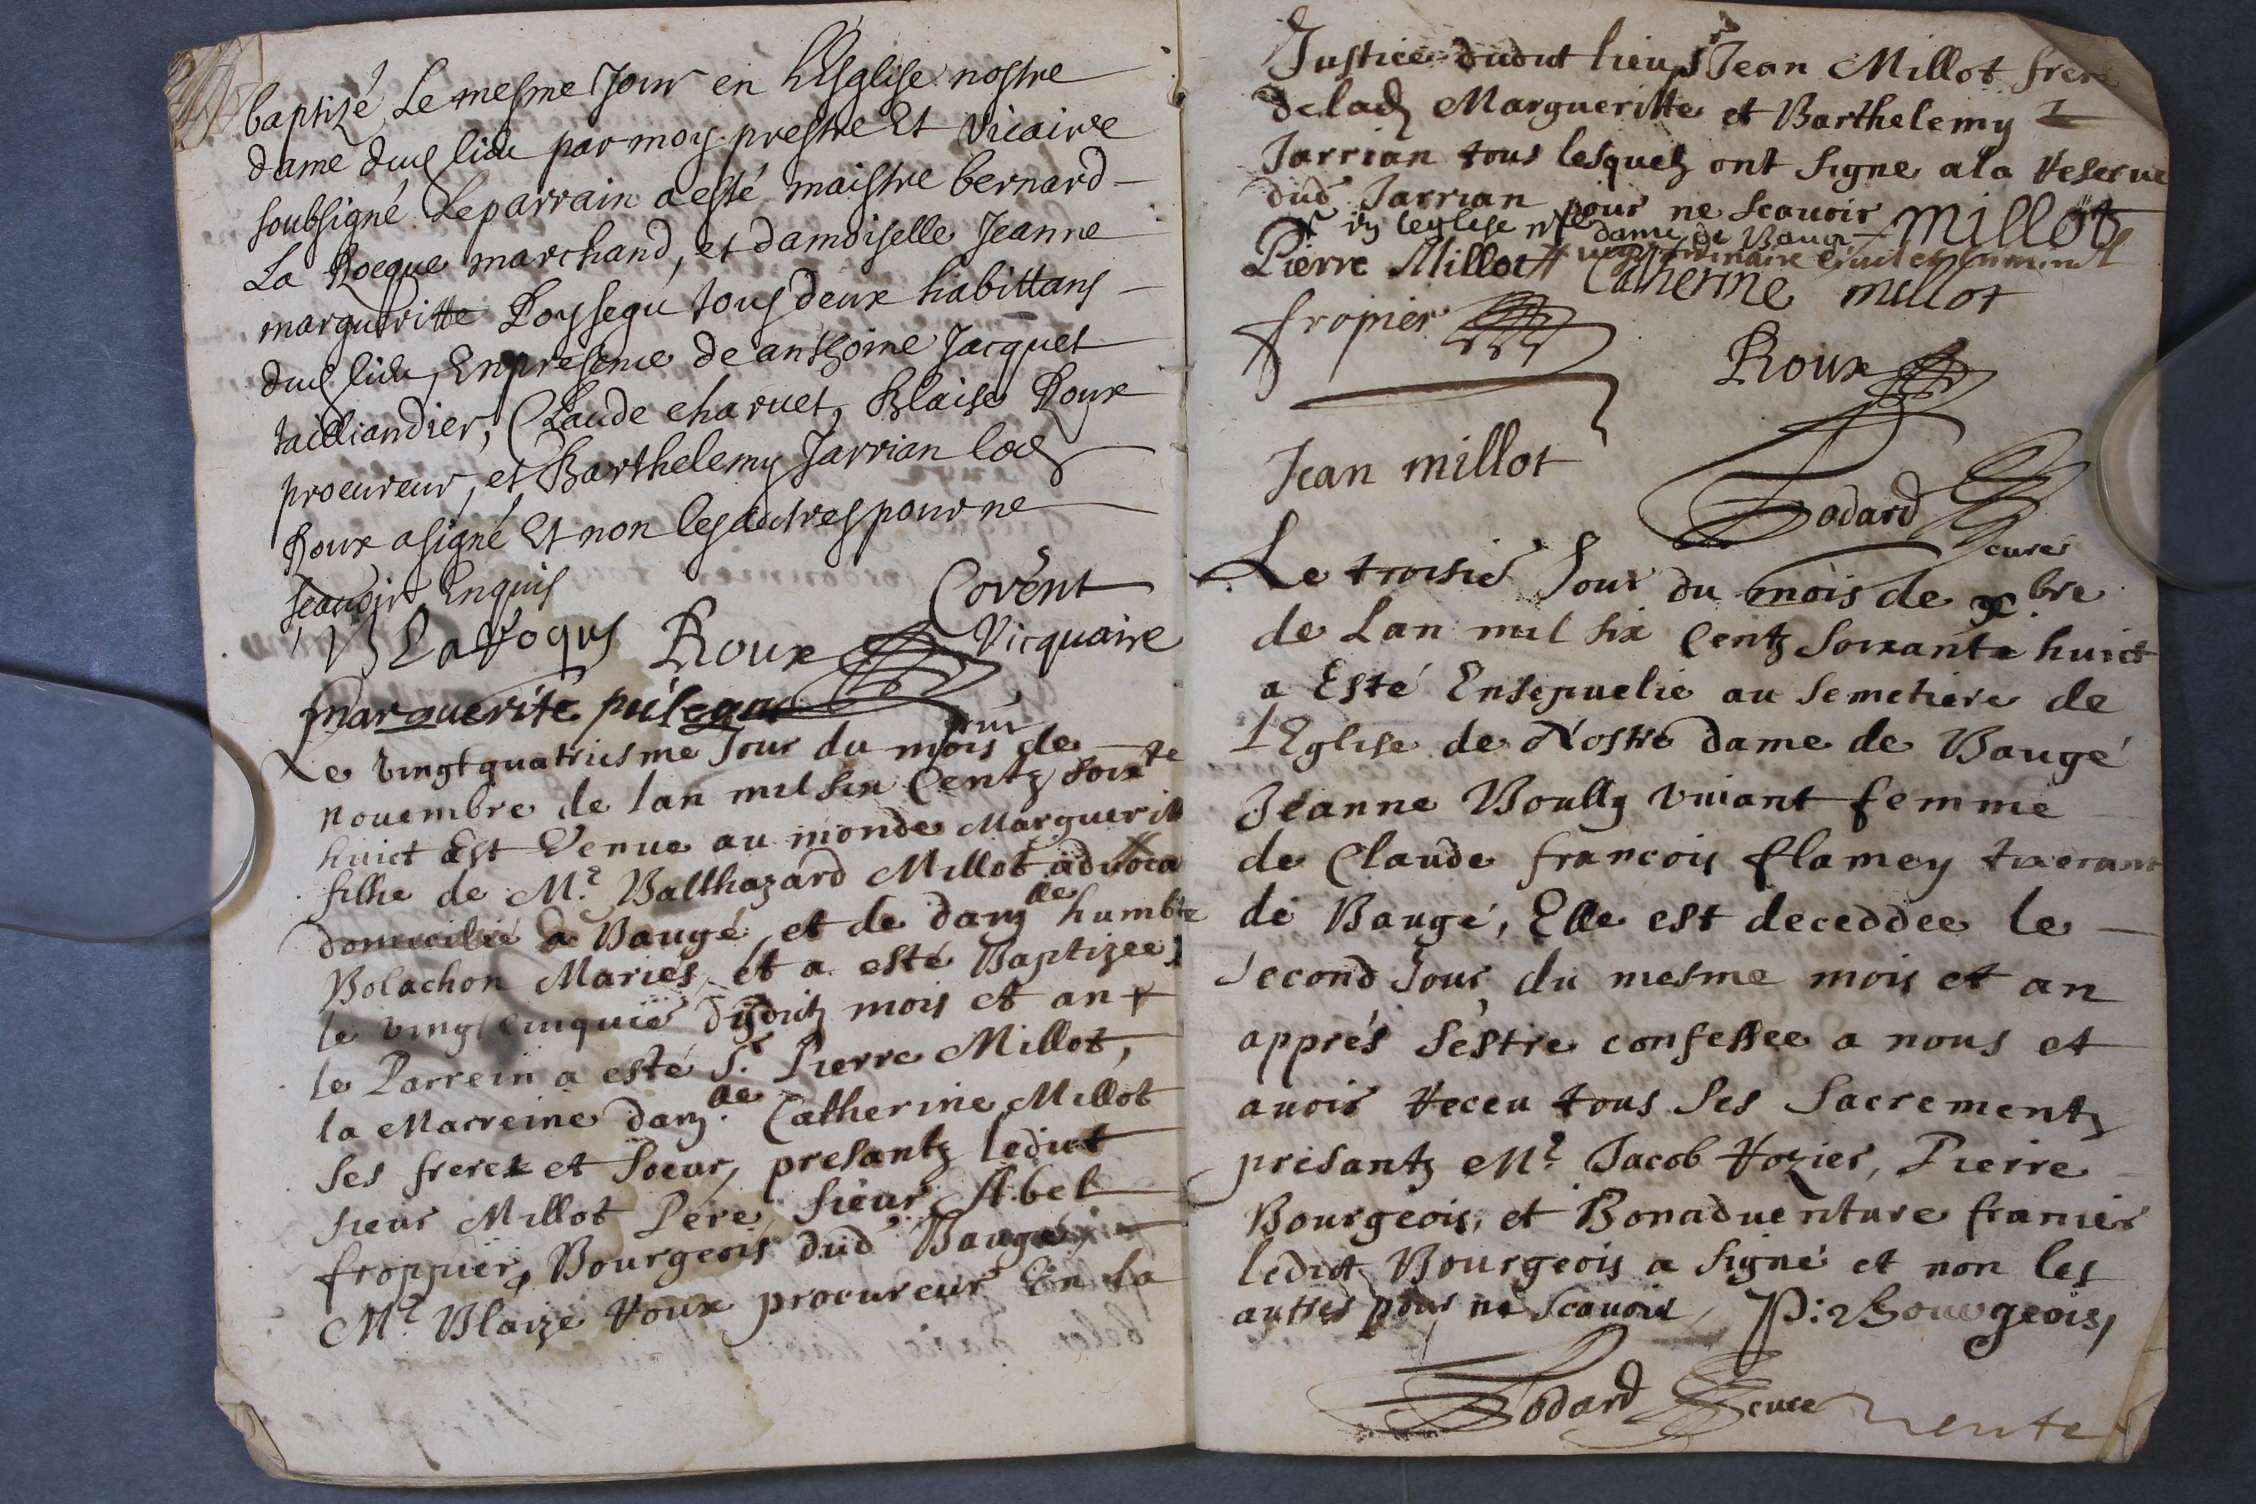 baptizé Le mesme Jour en L'Esglise nostre
dame dud lieu par moy prestre Et vicaire
soubsigné Le parrain a esté maistre bernard
La Rocque marchand, et damoiselle Jeanne
margueritte tous deux habittans
dud lieu, En presence de anthoine Jacquet
tailliandier, Claude charuet, Blaise Roux
procureur, et Barthelemy Jarrian led
Roux a signé Et non les autres pour ne
scavoir Enquis
Covent
B Laroque Roux Vicquaire
marguerite
Le vingt quatriesme Jour du mois de
nouembre de lan mil six Centz soix te
huict Est Venue au monde Marguerit
filhe de Mr Balthazard Millot aduoca
domicilié a Baugé, et de damlle humb
Bolachon Mariés, et a esté Baptizee
le vingt cinquie dudictz mois et an
le Parrein a esté Sr Pierre Millot,
la Marreine damlle Catherine Millot
ses frere et Soeur, presantz ledict
sieur Millot Pere, sieur Abel
froppier, Bourgeois dud Baugé,
Mr Blaize Roux procureur En la
Justice dudit lieu, Sr Jean Millot frere
de lad Margueritte et Barthelemy
Jarrian tous lesquelz ont signe a la reserue
dud Jarrian pour ne scauoir Millot
leglise nre dame de Baugé
Pierre Millot
Catherine millot
fropier Roux
Jean millot
Godard
cure
Le troisie Jour du mois de xbre
de Lan mil six Centz soixante huict
a Esté Ensepuelie au semetiere de
l'Eglise de Nostre dame de Baugé
Jeanne Boully viuant femme
de Claude francois flamey tixerant
de Baugé, Elle est deceddee le
second Jour du mesme mois et an
apprés s'éstre confessee a nous et
auoir receu tous ses sacrementz
presantz Mr Jacob rozier, Pierre
Bourgeois, et Bonaduenture franier
ledict Bourgeois a signé et non les
autres pour ne scauoir P: Bourgeois,
Godard cure